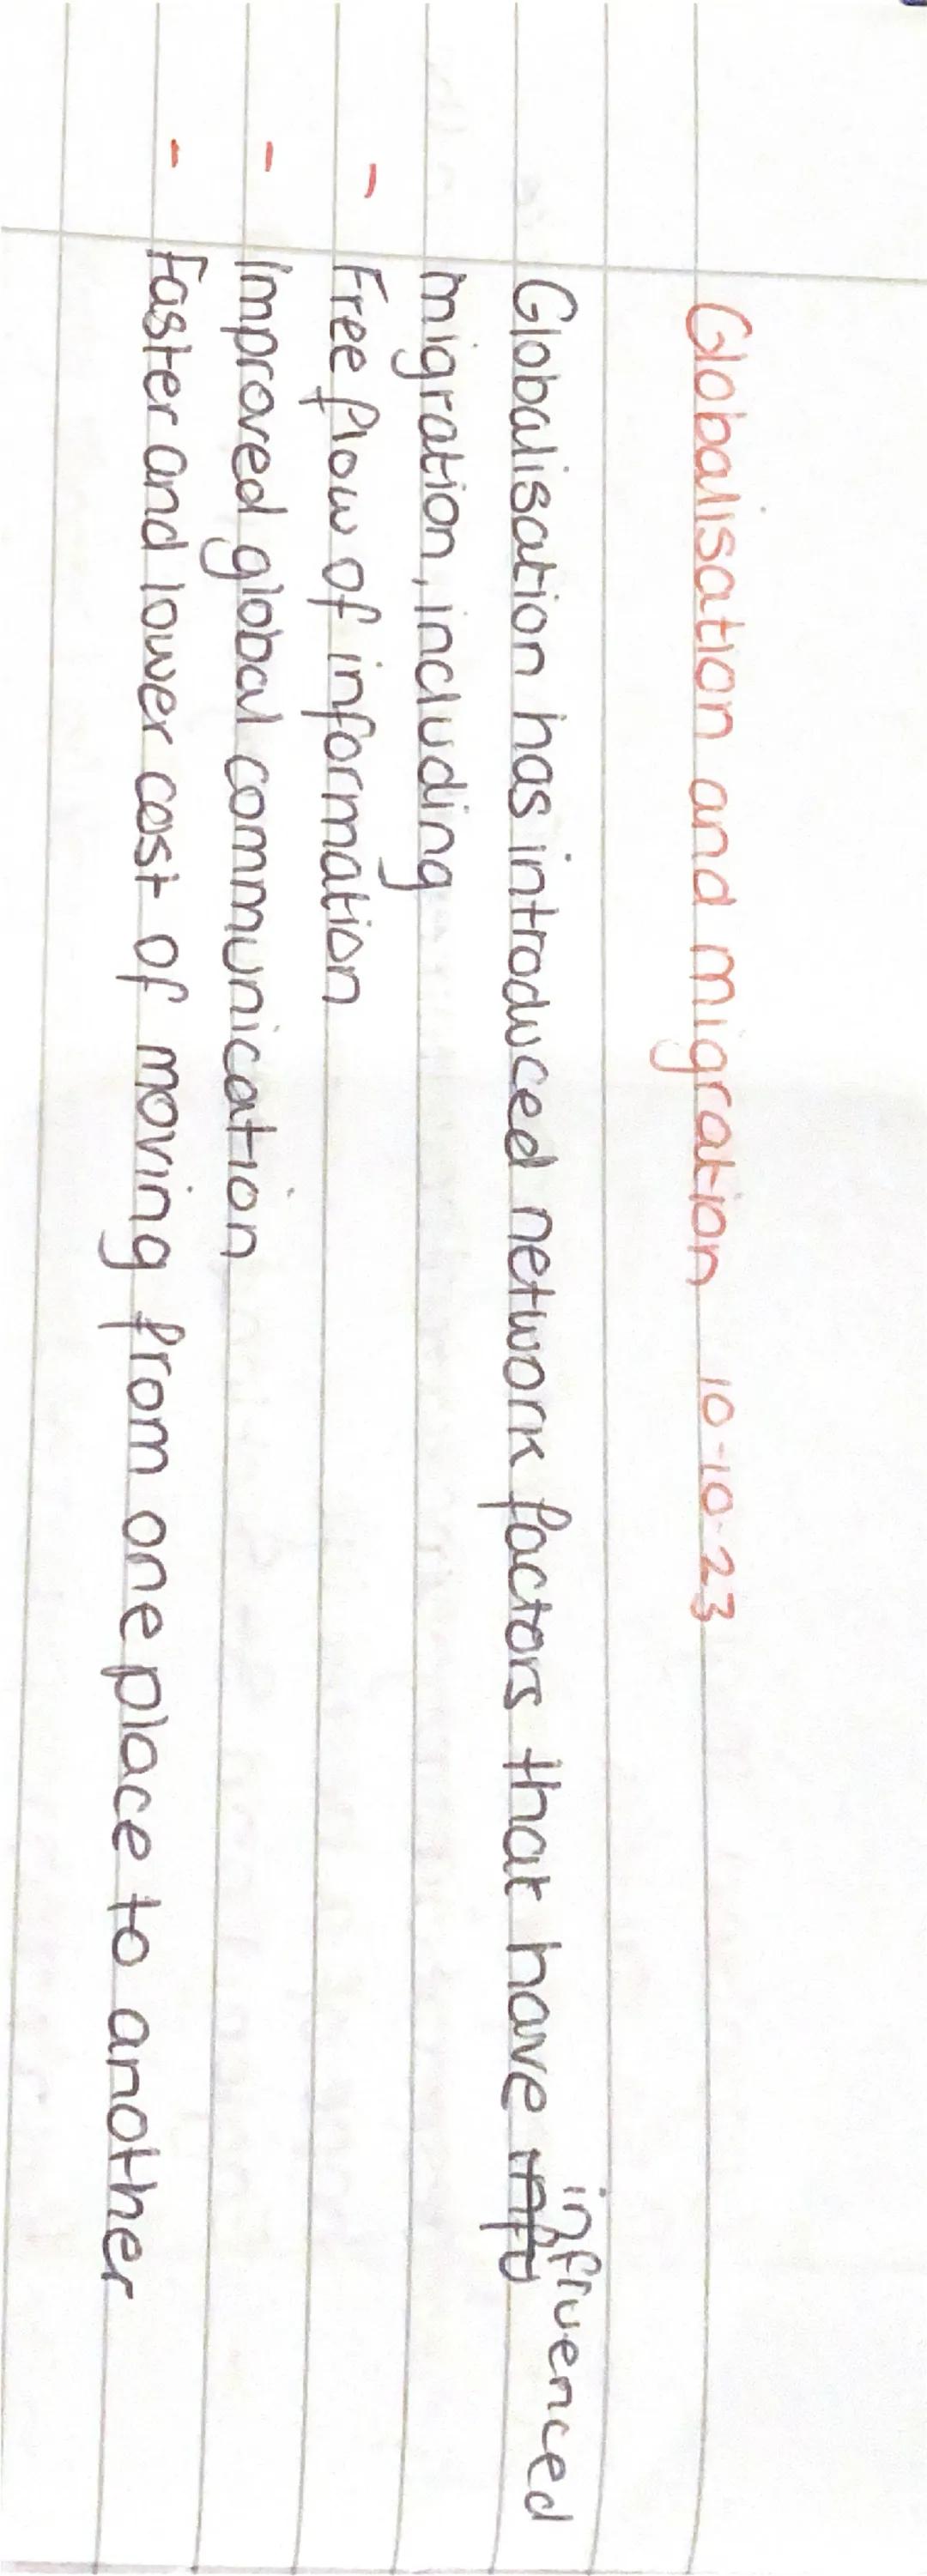 Globalisation and migration 10-10-23
Globalisation has introduced network factors that have influenced
migration, including
- Free flow of information
- Improved global communication
- Faster and lower cost of moving from one place to another